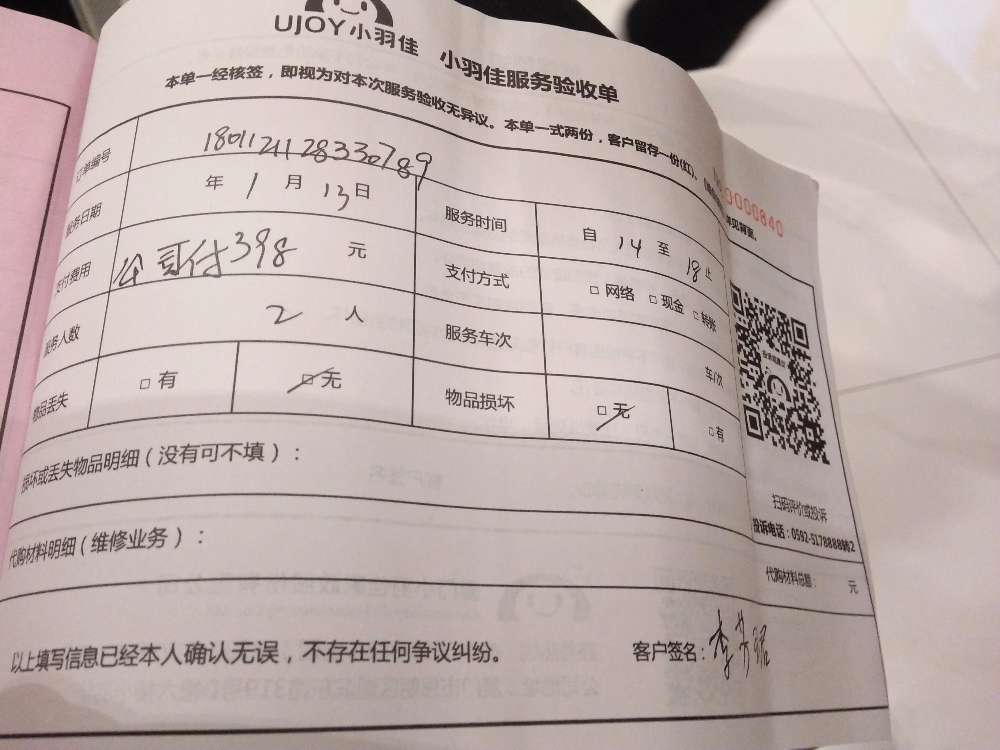 UJOY小羽佳 小羽佳服务验收单
本单一经核签，即视为对本次服务验收无异议。本单一式两份，客户留存一份(红)。
0000840
订单编号 180112112833078989
服务日期 年 1 月 13 日 服务时间 自 14 至 18 止
支付费用 付398 元 支付方式 □ 网络 □ 现金 □ 转账
服务人数 2 人 服务车次 车/次
物品丢失 □ 有 □ 无 物品损坏 □ 无 □ 有
损坏或丢失物品明细（没有可不填）：
扫码评价或投诉
投诉电话：0592-5178888转2
代购材料明细（维修业务）：
代购材料总额： 元
以上填写信息已经本人确认无误，不存在任何争议纠纷。 客户签名：李